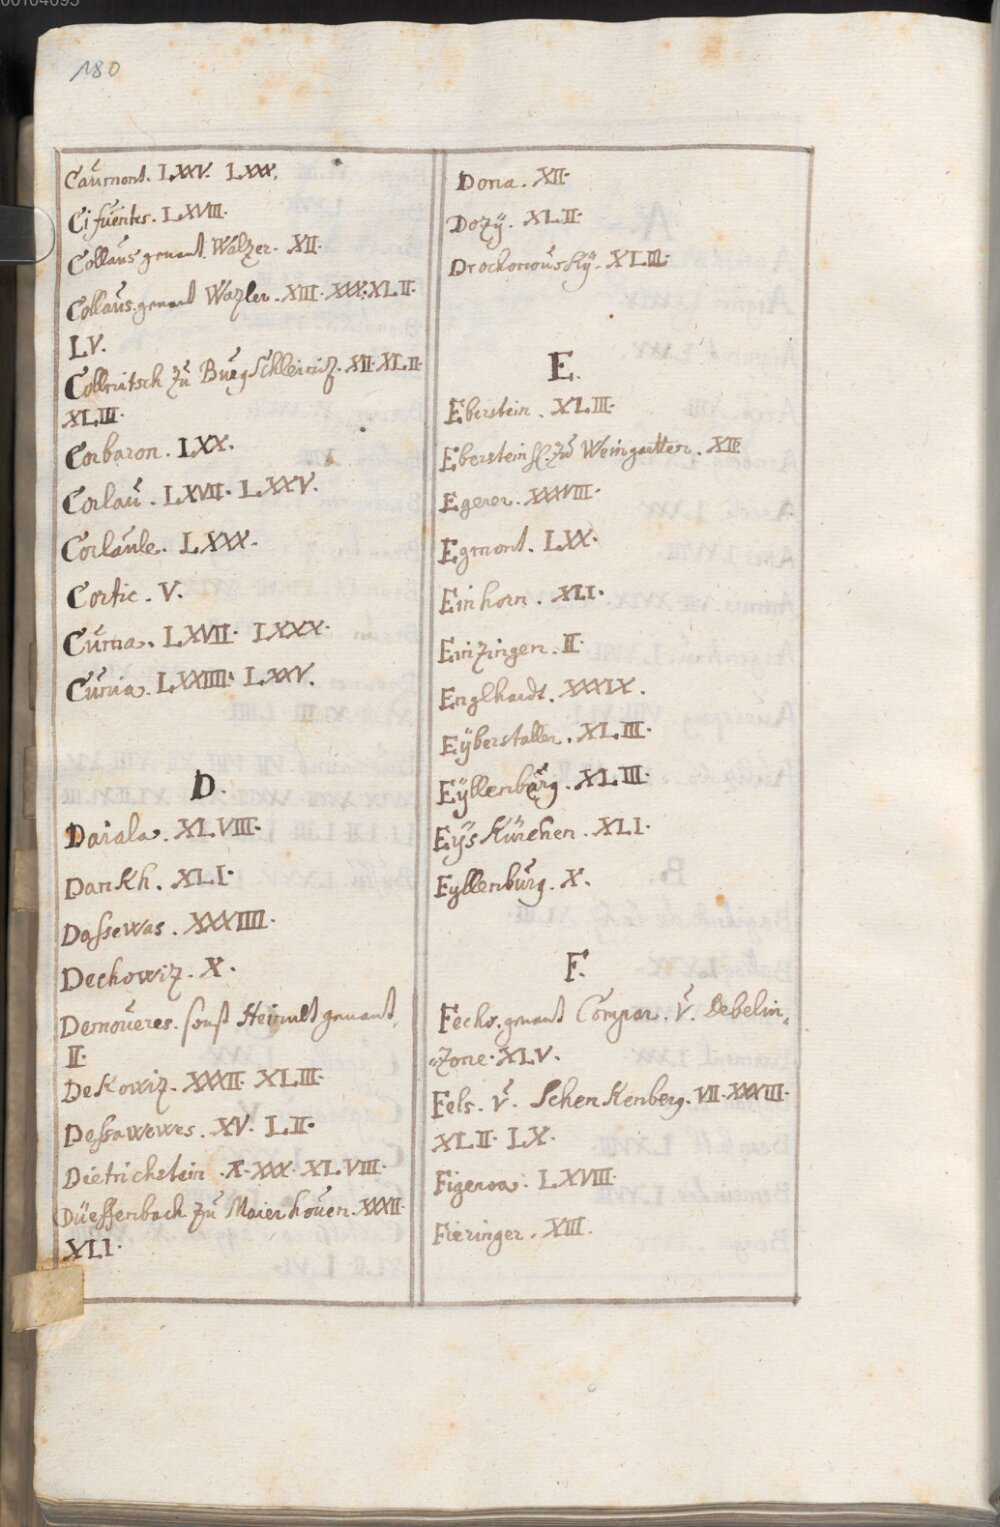 180
Caumont. LXXV. LXXX.
Cifuentes. LXVIII.
Collaus genant Walzer. XII.
Collaus genant Wazler. XIII. XXX. XLII.
LV.
Collnitsch zu Burg Schleiniz. XII. XLII.
XLIII.
Corbaron. LXX.
Corlau. LXVII. LXXV.
Corlaule. LXXX.
Cortie. V.
Cuma. LXVII. LXXX.
Curia. LXXIIII. LXXV.
D.
Daiala. XLVIII.
Dankh. XLI.
Dassewas. XXXIIII.
Dechowiz. X.
Demoueres. sonst Heimlt genant,
II.
DeKowiz. XXXII. XLIII.
Dessawewes. XV. LII.
Dietrichstein. X. XXX. XLVIII.
Düeffenbach zu Maierhouen. XXXII.
XLI.
Dona. XII.
Dozÿ. XLII.
DrockonousKÿ. XLIII.
E.
Eberstein. XLIII.
Eberstein zu Weingartten. XIII.
Egerer. XXXVIII.
Egmont. LXX.
Einhorn. XLI.
Einzingen. II.
Englhardt. XXXIX.
Eÿberstaller. XLIII.
Eÿllenbürg. XLIII.
EÿsKürchen. XLI.
Eyllenburg. X.
F.
Fechs. genant Compan. V. Debelin,
zone. XLV.
Fels. V. SchenKenberg. VII. XXXIII.
XLII. LX.
Figeroa. LXVIII.
Fieringer. XIII.